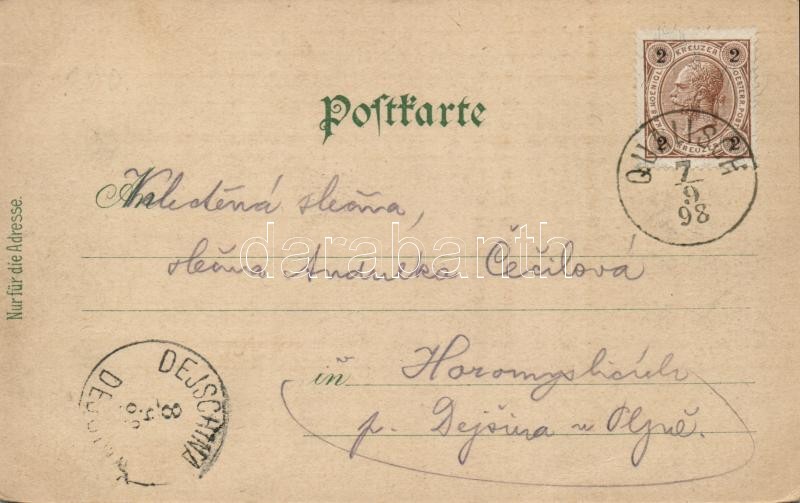 2 KREUZER 2
KAIS. KOENIGL. OESTERR. POST
2 KREUZER 2
7/9
98
Postkarte
An Velectěná slečna,
slečna Andulka Čečilová
in Horomyslicích
p. Dejšina u Plzně.
Nur für die Adresse.
DEJSCHINA
8
darabanth